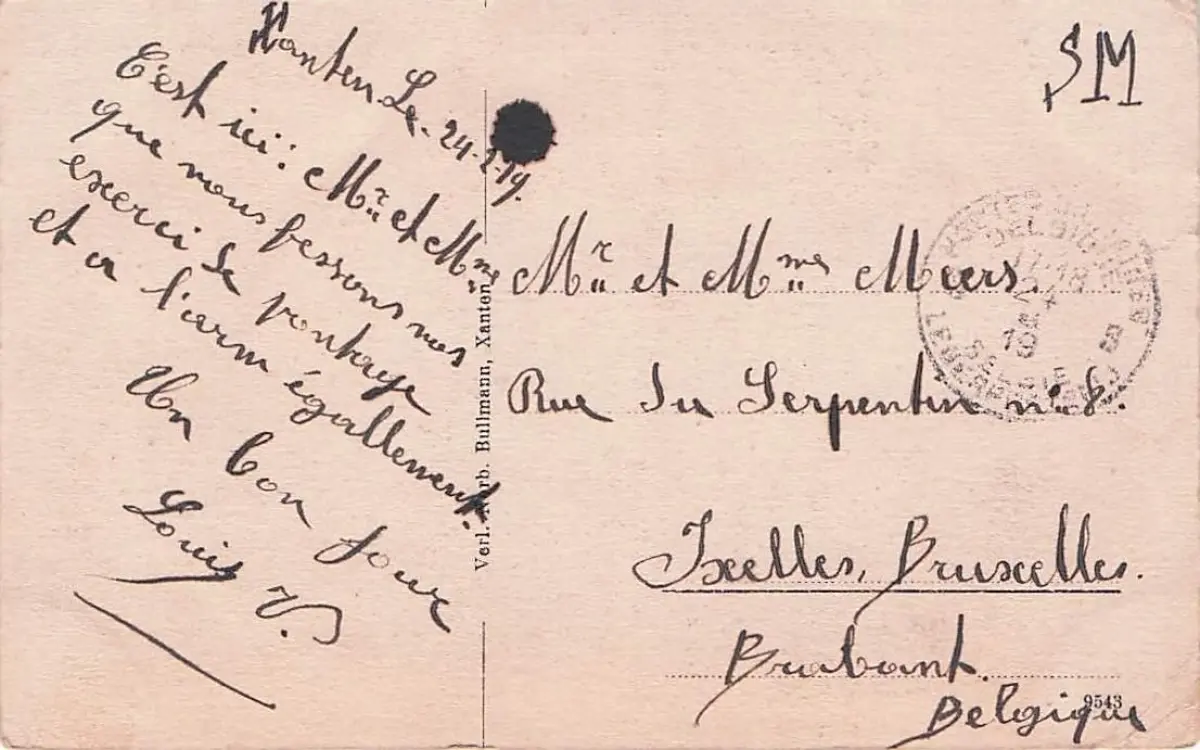 Xanten Le. 24-2-19.
C'est ici: Mr et Mme
que nous fessons nos
exerci de pontage
et a l'arm égallement.
Un bon jour
Louis V.
Verl. Bullmann, Xanten
SM
Mr et Mmes Meers.
Rue du Serpentin no 8.
Ixelles, Bruxelles.
Brabant.
Belgique
9543